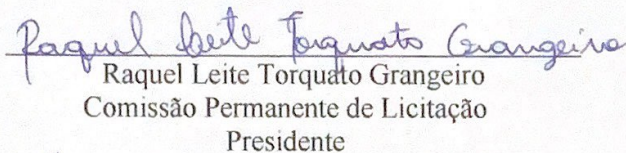 Raquel Leite Torquato Grangeiro
Raquel Leite Torquato Grangeiro
Comissão Permanente de Licitação
Presidente